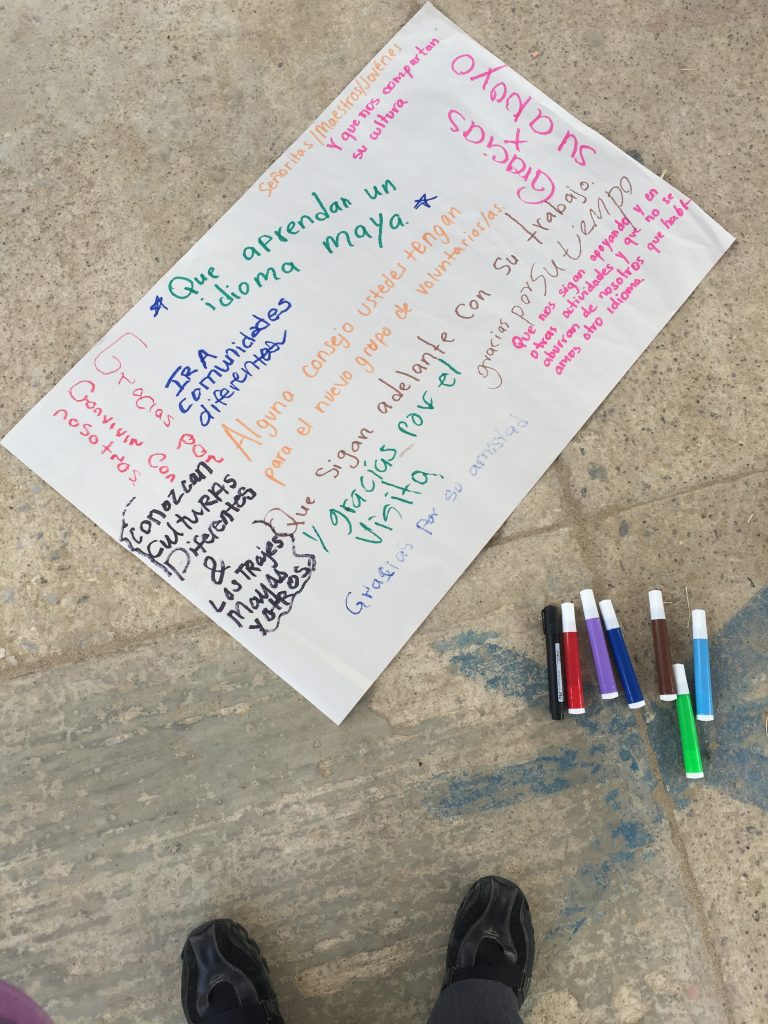 Señoritas/Maestros/Jovénes
Y que nos compartan
su cultura
Gracias
x
su apoyo
Que aprendan un
idioma maya.
IR A
comunidades
diferentes
Alguna consejo ustedes tengan
para el nuevo grupo de voluntarias/as.
Gracias por
Convivir con
nosotros
Conozcan
culturas
Diferentes
&
Los TRajes
mayas
y otros
Que sigan adelante con su trabajo.
y gracias por el
visita
gracias por su tiempo
Que nos sigan apoyando y en
otras actividades y que no se
aburran de nosotros que habl-
amos otro idioma.
Gracias por su amistad